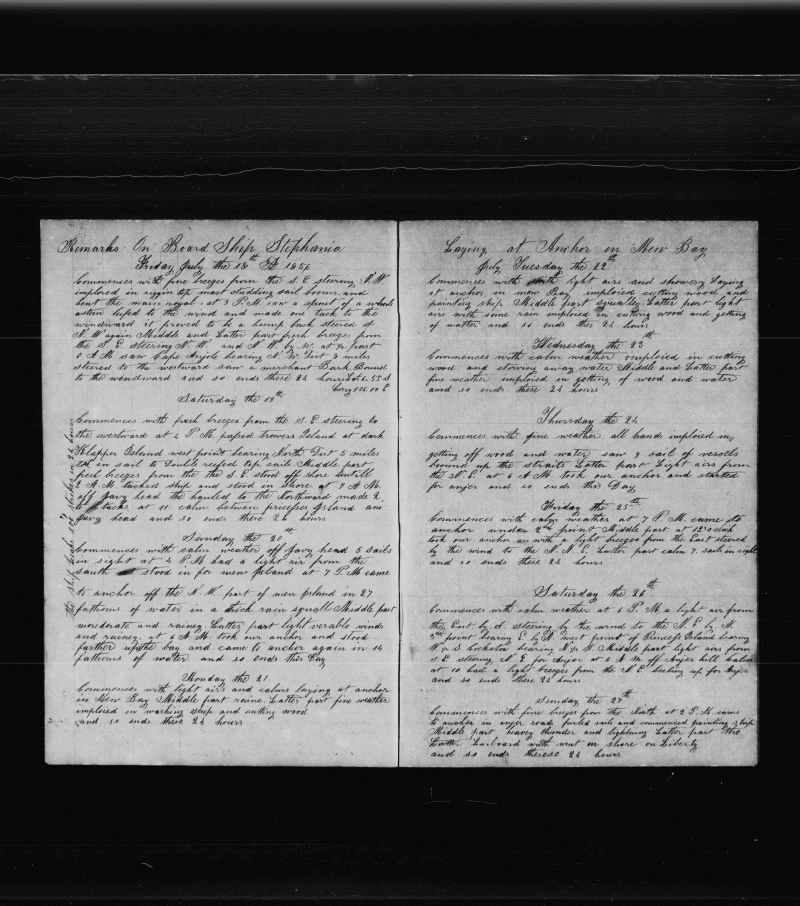 Remarks On Board Ship Stephania
Friday July the 18th AD 1856
Commences with fine breezes from the S.E. steering N.W.
imploied in rigin top mast studding sail booms and
bent the main royal at 3 P.M. saw a spout of a whale
astern lufed to the wind and made one tack to the
windward it proved to be a hump back steered of
N.W. again Middle and Latter part fresh breezes from
the S.E. Steering N.W. and N.W. by W. at
6 A.M. saw Cape bearing N.W. Dist 8 miles
steered to the westward saw a merchant Bark Bound
to the windward and so ends these 24 hours Lat 6.55 S
Long 106.00 E
Saturday the 19th
Commences with fresh breezes from the S.E. steering to
the westward at 4 P.M. passed Trowers Island at dark
Klapper Island west point bearing North Dist 5 miles
in sail to Double reefed top sails Middle part
breezes from the S.E. stood off shore untill
12 A.M. tacked ship and stood in shore at 7 A.M.
off Javy head the hauled to the Northward made 2
tacks at 11 calm between Island and
Javy head and so ends these 24 hours
Sunday the 20th
Commences with calm weather off Javy head 5 sails
in sight at 4 P.M. had a light air from the
South stood in for mew Island at 7 P.M. came
to anchor off the N.W. part of mew Island in 27
fathoms of water in a thick rain squall Middle part
moederate and rainey Latter part light verable winds
and rainey at 6 A.M. took our anchor and stood
farther up the bay and came to anchor again in 14
fathoms of water and so ends this Day
Monday the 21
Commences with light airs and calms laying at anchor
in Mew Bay Middle part raine Latter part fine weather
imploied in washing ship and cutting wood
and so ends these 24 hours
the ship in 24 hours
Laying at Anchor in Mew Bay
July Tuesday the 22th
Commences with light airs and showery Laying
at anchor in mew Bay imploied cutting wood and
painting ship Middle part squaley Latter part light
airs with some rain imploied in cutting wood and getting
of watter and so ends thes 24 hours
Wednesday the 23th
Commences with calm weather imploied in cutting
wood and stowing away water Middle and Latter part
fine weather imploied in getting of wood and water
and so ends these 24 hours
Thursday the 24
Commences with fine weather all hands imploied in
getting off wood and water saw 9 sail of vessels
bound up the straits Latter part Light airs from
the N.E. at 6 A.M. took our anchor and started
for anjer and so ends this Day
Friday the 25th
Commences with calm weather at 7 P.M. came to
anchor under 2nd point Middle part at 12 oclock
took our anchor with a light breezes from the East steered
by the wind to the N.N.E. Latter part calm 7 sail in sight
and so ends these 24 hours
Saturday the 26th
Commences with calm weather at 6 P.M. a light air from
the East by S. steering by the wind to the N.E. by N.
3rd point bearing E. by N. west point of Princess Island bearing
W by S Cockatoo bearing N by W. Middle part light airs from
S.E. steering N.E. for Anjer at 6 A.M. off Anjer hill Calm
at 10 had a light breeze from the N.E. beating up for Anjer
and so ends these 24 hours
Sunday the 27th
Commences with fine breezes from the North at 2 P.M. came
to anchor in anjer roads furled sails and commenced painting ship
Middle part heavey thunder and lightning Latter part the
Larboard watch went on shore on Liberty
and so ends theese 24 hours